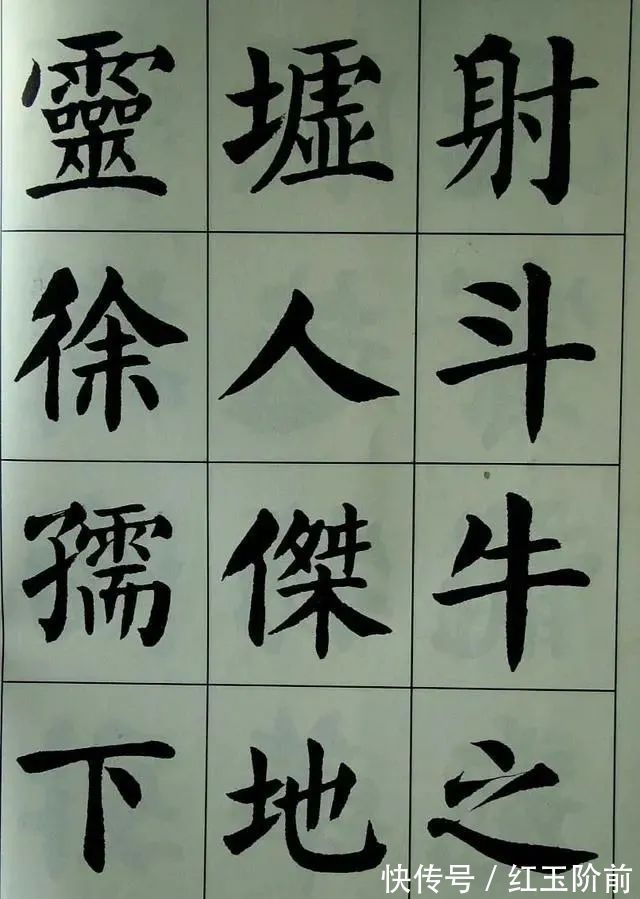 射斗牛之
墟人傑地
靈徐孺下
快传号/红玉阶前